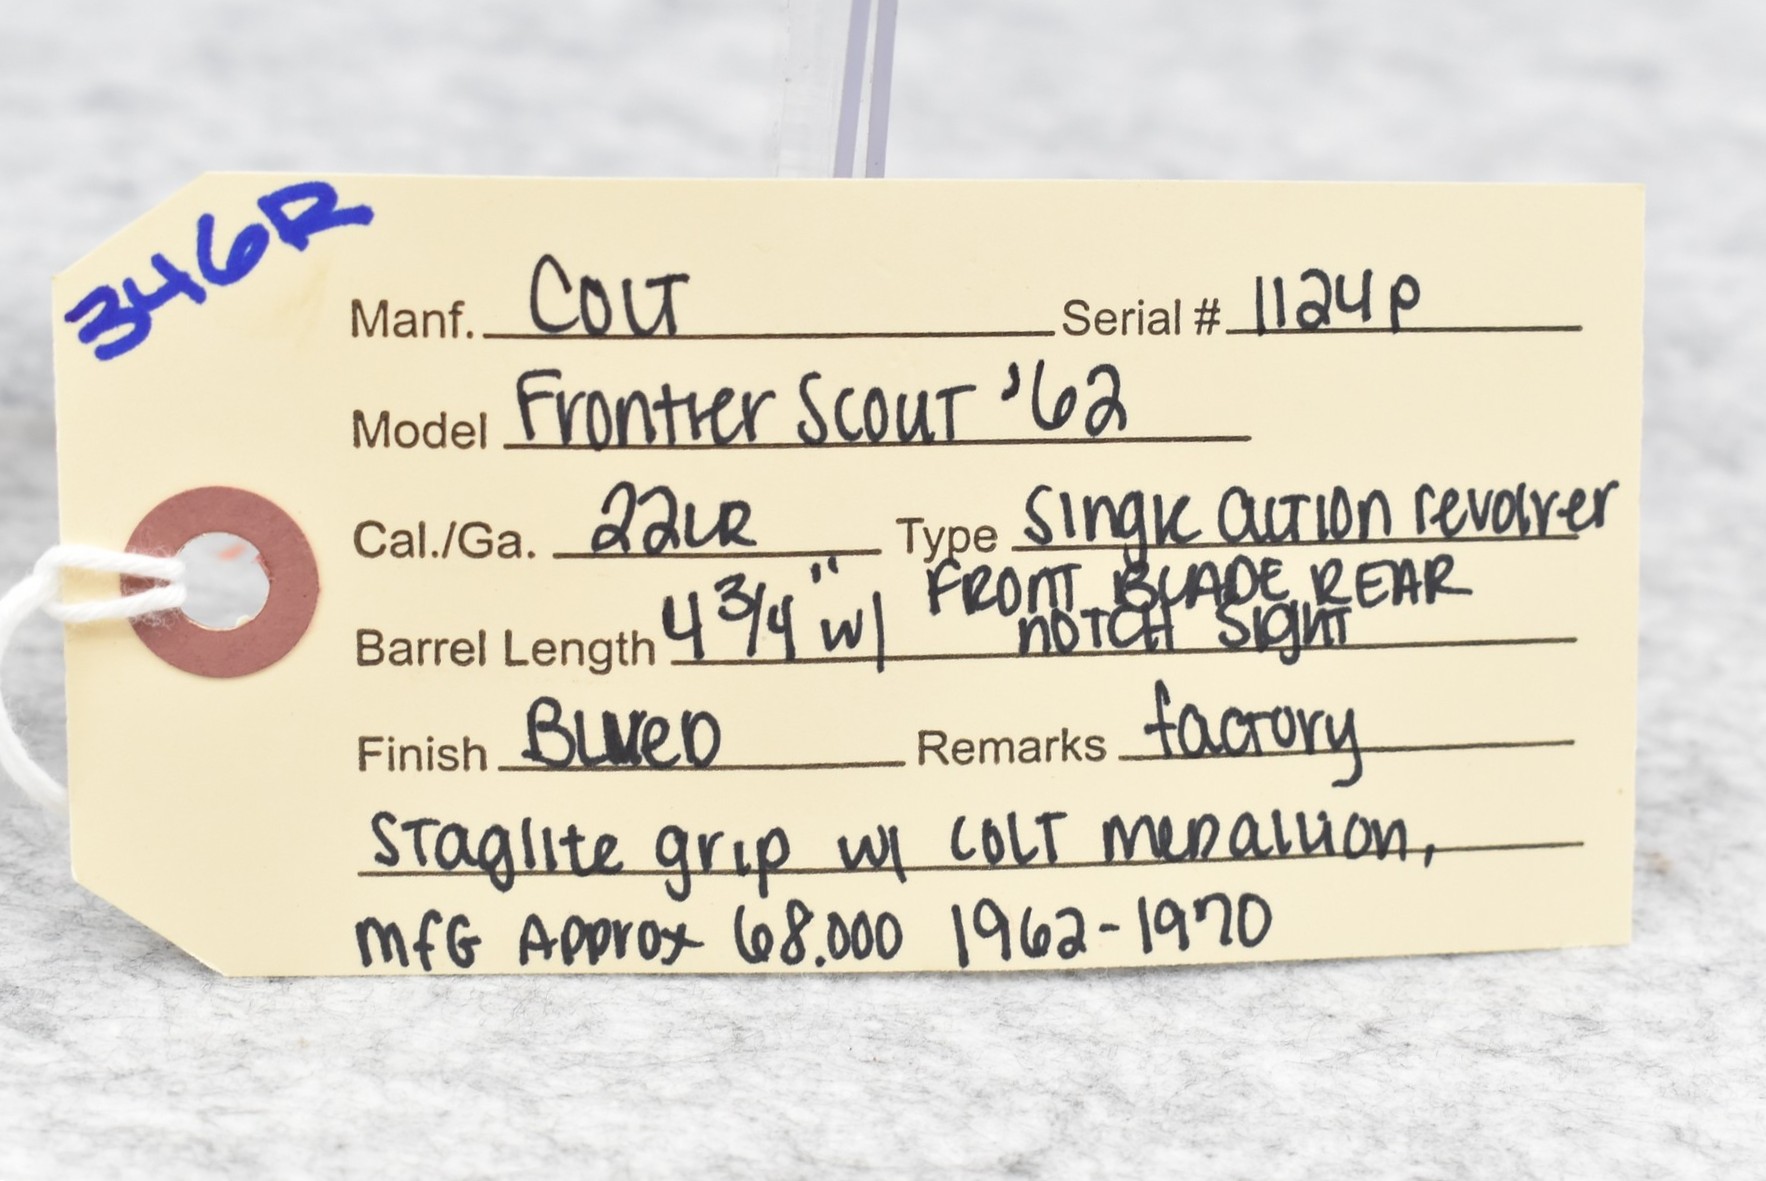 346R
Manf. COLT Serial # 1124P
Model Frontier Scout '62
Cal./Ga. 22LR Type Single action revolver
Barrel Length 4 3/4" w/ FRONT BLADE REAR
NOTCH Sight
Finish BLUED Remarks factory
Staglite grip w/ COLT medallion,
MFG Approx 68.000 1962-1970